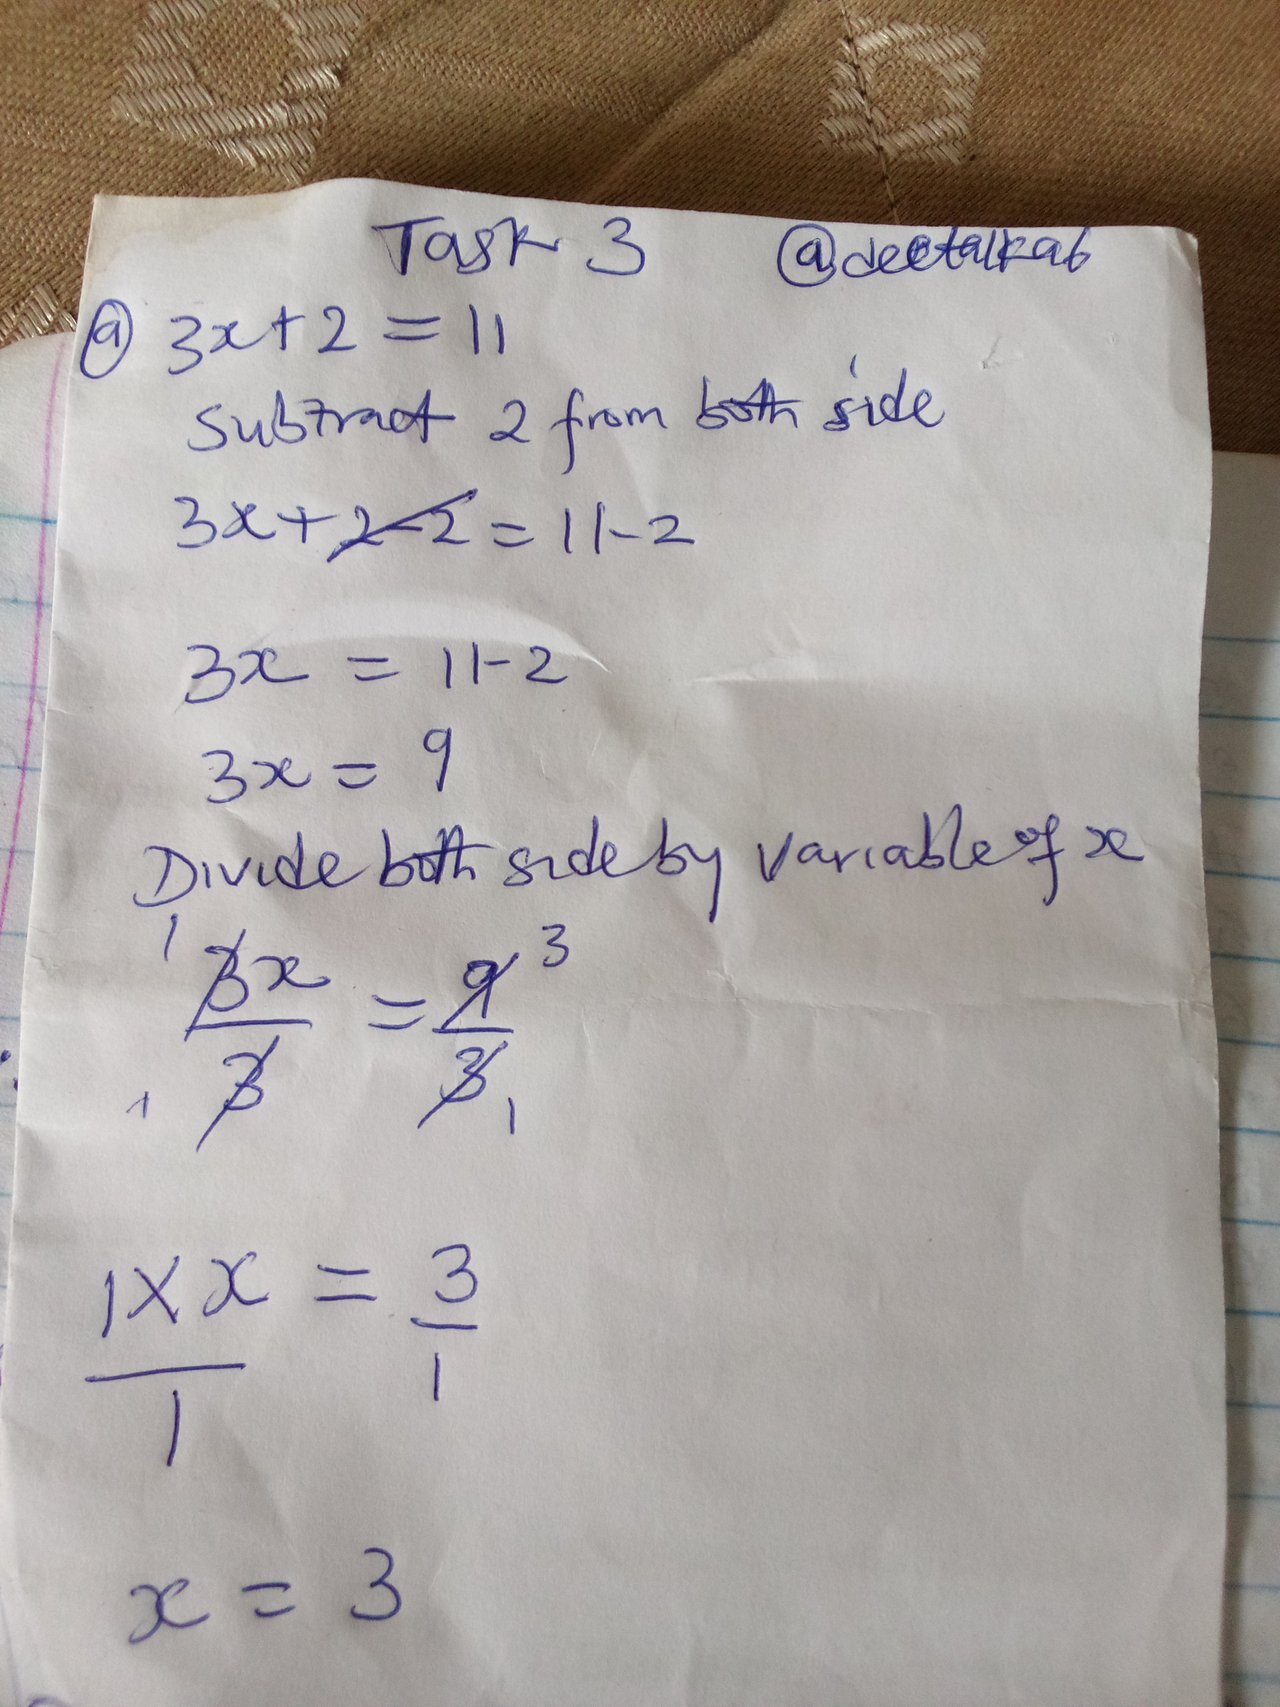 Task 3 @deetalkab
(a) 3x + 2 = 11
Subtract 2 from both side
3x + 2 - 2 = 11 - 2
3x = 11 - 2
3x = 9
Divide both side by variable of x
1 3x = 9 3
1 3 3 1
1 × x = 3
1 1
x = 3